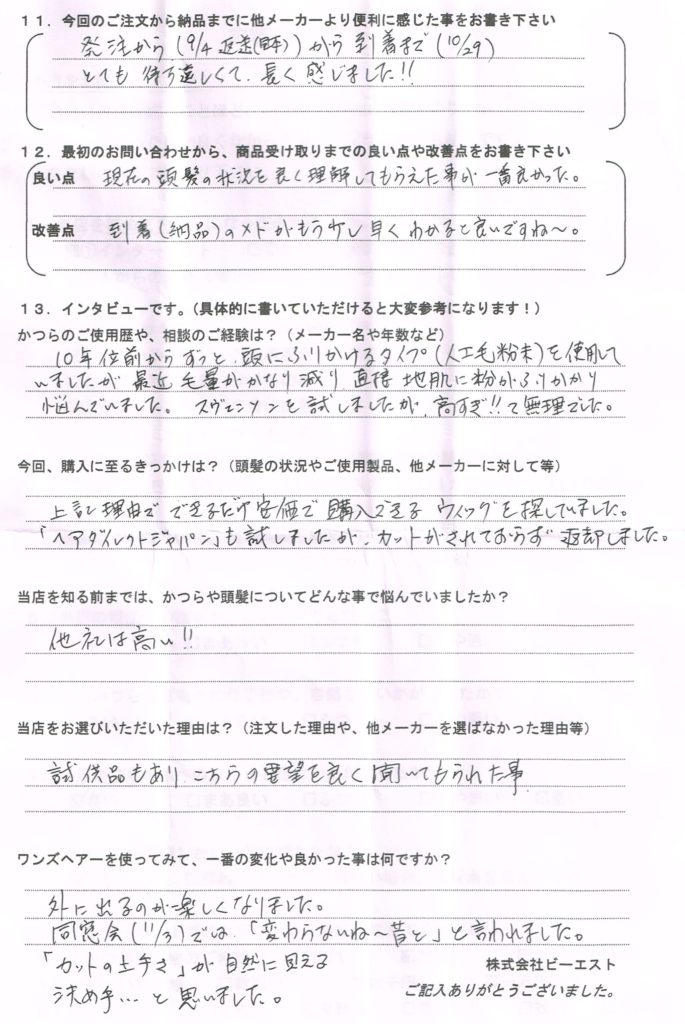 11．今回のご注文から納品までに他メーカーより便利に感じた事をお書き下さい
発注から(9/4 返送(日本))から到着まで(10/29)
とても待ち遠しくて、長く感じました!!
12．最初のお問い合わせから、商品受け取りまでの良い点や改善点をお書き下さい
良い点 現在の頭髪の状況を良く理解してもらえた事が一番良かった。
改善点 到着(納品)のメドがもう少し早くわかると良いですね〜。
13．インタビューです。（具体的に書いていただけると大変参考になります！）
かつらのご使用歴や、相談のご経験は？（メーカー名や年数など）
10年位前からずっと、頭にふりかけるタイプ(人工毛粉末)を使用して
いましたが最近毛量がかなり減り直接地肌に粉がふりかかり
悩んでいました。スヴェンソンを試しましたが、高すぎ!!て無理でした。
今回、購入に至るきっかけは？（頭髪の状況やご使用製品、他メーカーに対して等）
上記理由でできるだけ安価で購入できるウィッグを探していました。
「ヘアダイレクトジャパン」も試しましたが、カットがされておらず返却しました。
当店を知る前までは、かつらや頭髪についてどんな事で悩んでいましたか？
他社は高い!!
当店をお選びいただいた理由は？（注文した理由や、他メーカーを選ばなかった理由等）
試供品もあり、こちらの要望を良く聞いてもらえた事
ワンズヘアーを使ってみて、一番の変化や良かった事は何ですか？
外に出るのが楽しくなりました。
同窓会(11/3)では、「変わらないね〜昔と」と言われました。
「カットの上手さ」が自然に見える
決め手…と思いました。
株式会社ビーエスト
ご記入ありがとうございました。